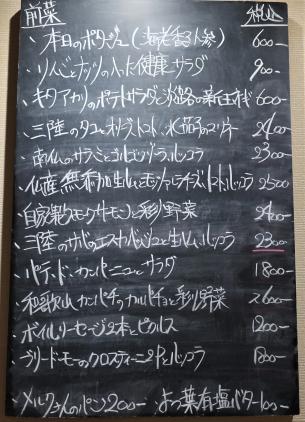 前菜 税込
・本日のポタージュ(海老香る人参) 600-
・りんごとナッツの入った健康サラダ 900-
・キタアカリのポテトサラダと淡路の新玉ネギ 600-
・三陸のタコとオリーブ、トマト、水茄子のマリネ 2400-
・南仏のサラミとゴルゴンゾーラ、ルッコラ 2300-
・仏産無添加生ハムとモッツァレラチーズ、トマト、ルッコラ 2500
・自家製スモーク牛モモと彩り野菜 2400-
・三陸のサバのエスカベッシュと生ハム、ルッコラ 2300-
・パテ・ド・カンパーニュとサラダ 1800-
・和歌山カンパチのカルパッチョと彩り野菜 2600-
・ボイルソーセージ2本とピクルス 1200-
・ブリー・ド・モーのクロスティーニとルッコラ
・メルクさんのパン200- よつ葉有塩バター100-